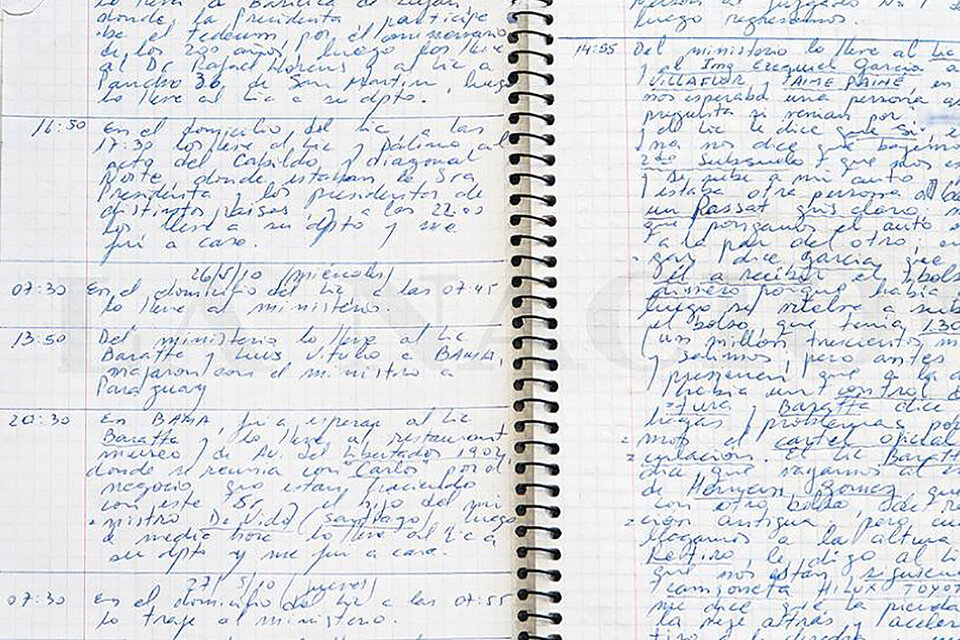 lo llevé a Basílica de Luján
donde la Presidenta, participó
de el tedeum, por el aniversario
de los 200 años, luego los llevé
al Dr Rafael Llorens y al Lic a
Pancho 36, de San Martín, luego
lo llevé al Lic a su dpto.
16:50 En el domicilio del Lic, a las
17:30 los llevé al Lic y Palino al
acto del Cabildo y diagonal
Norte donde estaban la Sra
Presidenta y los presidentes de
distintos paises y a las 22:00
los llevé a su dpto y me
fui a casa.
26/5/10 (miércoles)
07:30 En el domicilio del Lic a las 07:45
lo llevé al ministerio.
13:50 Del ministerio lo llevé al Lic
Baratta y Luis Vitulo a BAMA,
viajaron con el ministro a
Paraguay
20:30 En BAMA, fui a esperar al Lic
Baratta y lo llevé al restaurant
museo, de Av. del Libertador 1902
donde se reunia con "Carlos" por el
negocio que estan haciendo
con este Sr el hijo del mi
nistro De Vido (Santiago), luego
de media hora lo llevé al Lic a
su dpto y me fui a casa.
27/5/10 (jueves)
07:30 En el domicilio del Lic a las 07:55
lo traje al ministerio.
luego regresamos.
14:55 Del ministerio lo llevé al Lic
y el Ing Ezequiel Garcia a
VILLAFLOR JAIME PAINE, en
nos esperaba una persona
pregunta si venian por
y el Lic le dice que si,
na nos dice que bajemos
2do subsuelo y que nos
y se sube a mi auto
estaba otra persona al
un Passat gris claro,
que pongamos el auto
a la par del otro,
gar y dice Garcia, que
él a recibir el bolso
primero porque habia
luego se vuelve a
el bolso, que tenia 1.30
(un millón trescientos
y salimos, pero antes
y previenen que a la
habia un control
y Baratta dice
problemas por
mos el cartel oficial
culación. El Lic Baratta
dice que vayamos al
de Hernan Gomez, que
con otro bolso,
cion antigua, pero
llegamos a la altura
Retiro, le digo al Lic
que nos estan siguiendo
camioneta HILUX TOYOT
me dice que la pierda
la deje atrás, y aceler